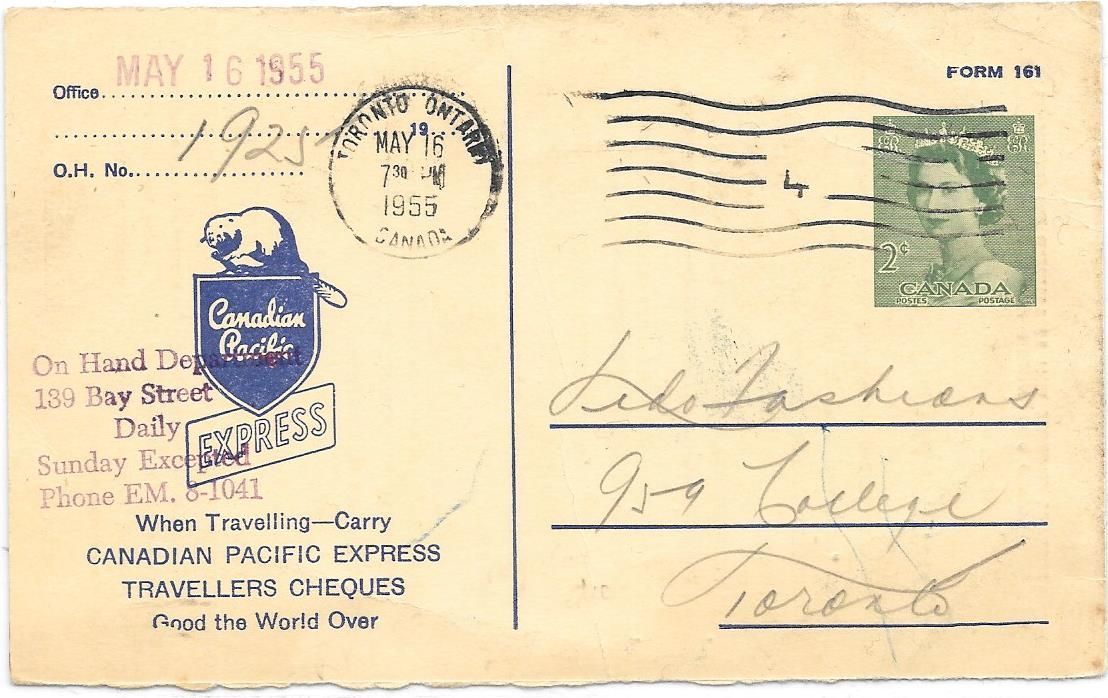 MAY 16 1955
FORM 161
Office
1925
O.H. No.
19
TORONTO ONTARIO
MAY 16
7 30 PM
1955
CANADA
4
2¢
CANADA
POSTES POSTAGE
Canadian
Pacific
EXPRESS
On Hand Department
139 Bay Street
Daily
Sunday Excepted
Phone EM. 8-1041
When Travelling—Carry
CANADIAN PACIFIC EXPRESS
TRAVELLERS CHEQUES
Good the World Over
Fashions
959 College
Toronto